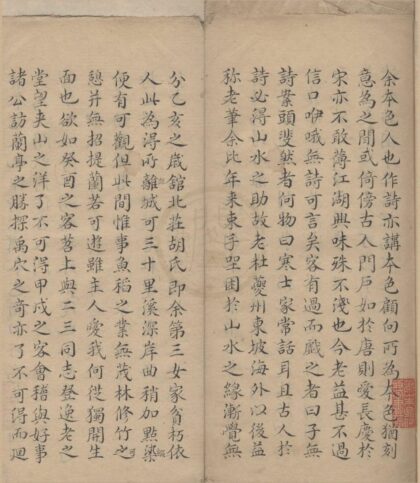 余本色人也作詩亦講本色顧向所為本色猶刻
意為之間或倚傍古人門戶如於唐則愛長慶於
宋亦不敢薄江湖興味殊不淺也今老益甚不過
信口咿哦無詩可言矣客有過而戲之者曰子無
詩案頭斐然者何物曰寒士家常話耳且古人於
詩必得山水之助故老杜夔州東坡海外以後益
称老筆余比年来束坐困於山水之緣漸覺無
分乙亥之歲館北莊胡氏即余第三女家貧朽依
人此為得所離城可三十里溪深岸曲稍加點染
便有可觀但此間惟事魚稻之業無茂林修竹之
憩并無招提蘭若可遊雖主人愛我何從獨開生
面也欲如癸酉之客苕上與二三同志登逸老之
堂望夫山之洋了不可得甲戌之客會稽與好事
諸公訪蘭亭之勝探禹穴之奇亦了不可得而迴